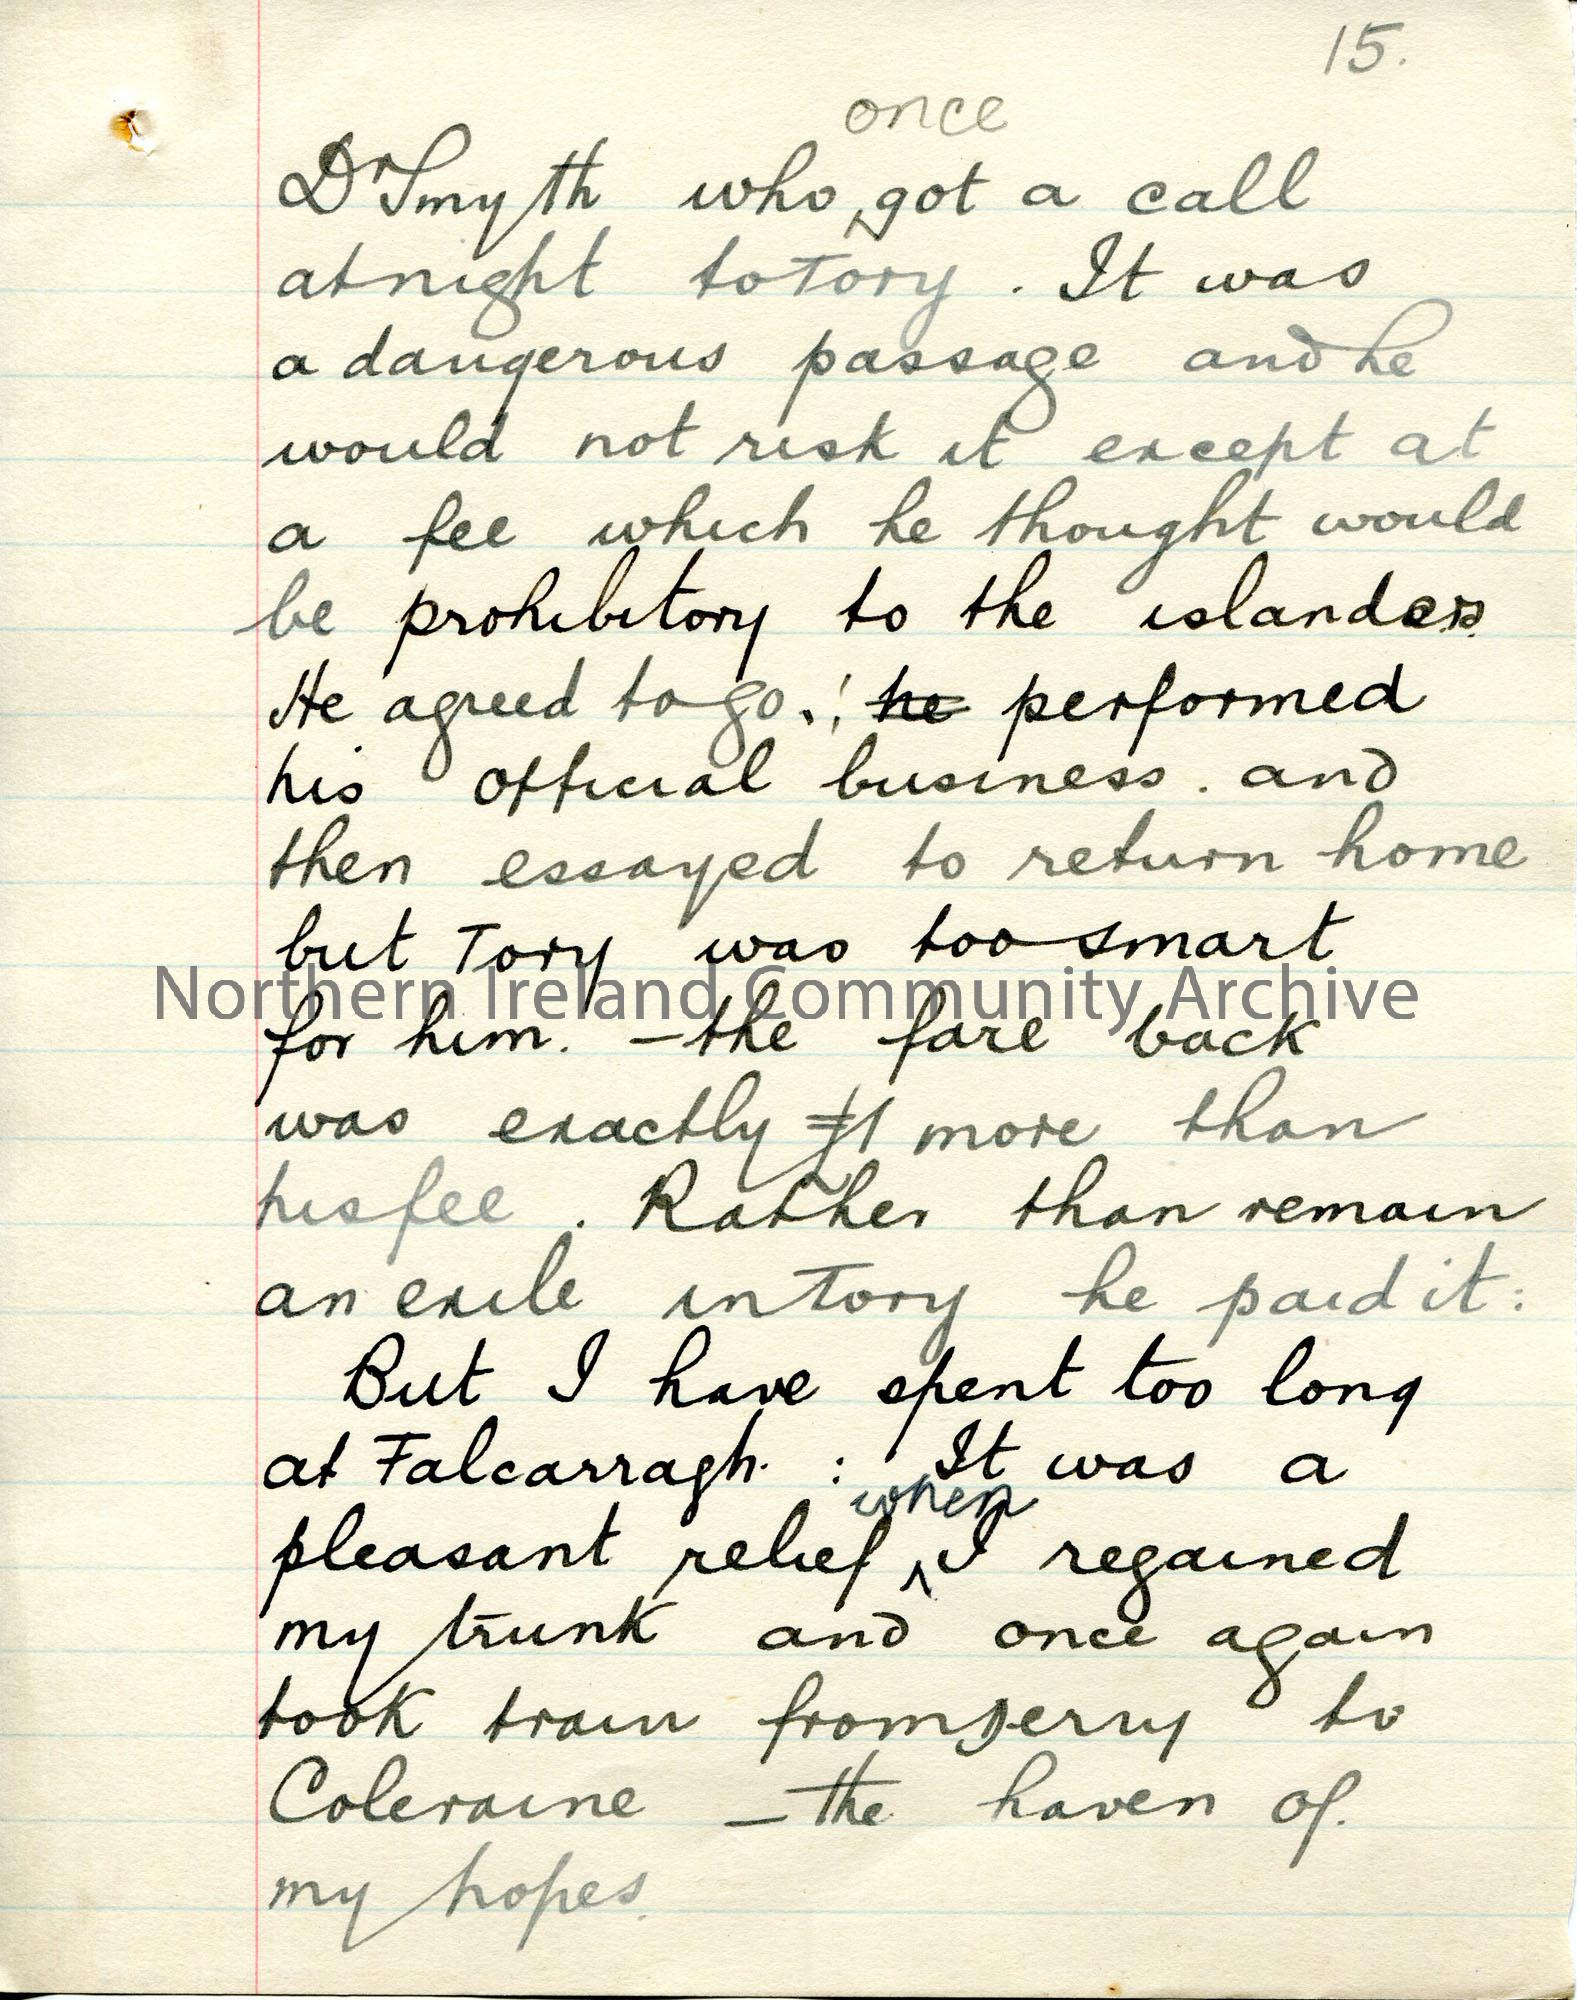 15.
once
Dr Smyth who ‸ got a call
at night to Tory. It was
a dangerous passage and he
would not risk it except at
a fee which he thought would
be prohibitory to the islanders.
He agreed to go.! he performed
his official business. and
then essayed to return home
but Tory was too smart
Northern Ireland Community Archive
for him. — the fare back
was exactly £1 more than
his fee. Rather than remain
an exile in Tory he paid it:
But I have spent too long
at Falcarragh. : It was a
when
pleasant relief ‸ I regained
my trunk and once again
took train from Derry to
Coleraine — the haven of.
my hopes.